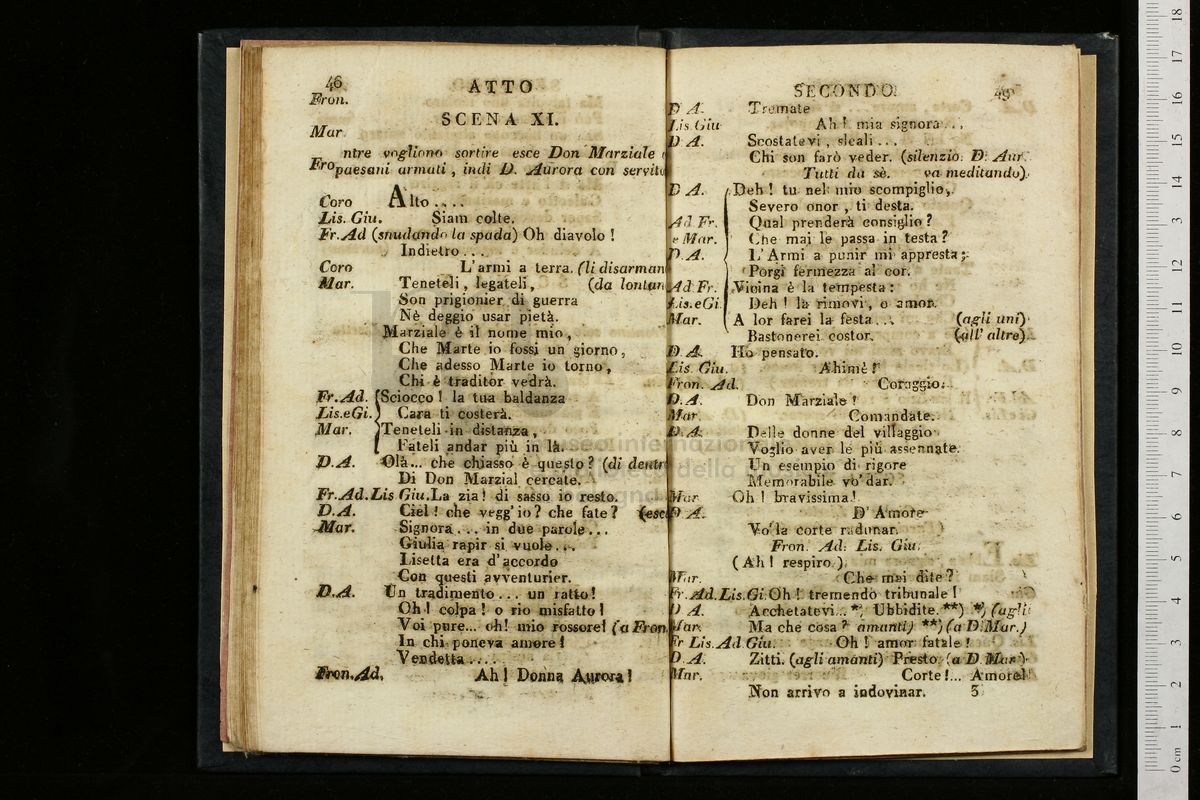 46
ATTO
Fron.
SCENA XI.
Mar.
ntre vogliono sortire esce Don Marziale
Fro
paesani armati, indi D. Aurora con servitù
Coro Alto ....
Lis. Giu. Siam colte.
Fr.Ad (snudando la spada) Oh diavolo !
Indietro ...
Coro L'armi a terra. (li disarman
Mar. Teneteli, legateli, (da lontan
Son prigionier di guerra
Nè deggio usar pietà.
Marziale è il nome mio,
Che Marte io fossi un giorno,
Che adesso Marte io torno,
Chi è traditor vedrà.
Fr.Ad. Sciocco ! la tua baldanza
Lis.eGi. Cara ti costerà.
Mar. Teneteli in distanza,
Fateli andar più in là.
D.A. Olà... che chiasso è questo ? (di dentr
Di Don Marzial cercate.
Fr.Ad.Lis Giu. La zia ! di sasso io resto.
D.A. Ciel ! che vegg'io ? che fate ? (esc
Mar. Signora ... in due parole ...
Giulia rapir si vuole ...
Lisetta era d'accordo
Con questi avventurier.
D.A. Un tradimento ... un ratto !
Oh ! colpa ! o rio misfatto !
Voi pure... oh! mio rossore! (a Fron.
In chi poneva amore !
Vendetta ....
Fron.Ad. Ah ! Donna Aurora !
SECONDO.
49
D A. Tremate
Lis Giu Ah ! mia signora ...
D A. Scostatevi, sleali ...
Chi son farò veder. (silenzio. D. Aur.
Tutti da sè. va meditando).
D A. Deh ! tu nel mio scompiglio,
Severo onor, ti desta.
Ad Fr. Qual prenderà consiglio ?
e Mar. Che mai le passa in testa ?
D.A. L'Armi a punir mi appresta;
Porgi fermezza al cor.
Ad Fr. Vicina è la tempesta :
Lis.eGi. Deh ! la rimovi, o amor.
Mar. A lor farei la festa ... (agli uni)
Bastonerei costor. (all' altre)
D.A. Ho pensato.
Lis Giu. Ahimè !
Fron. Ad. Coraggio.
D.A. Don Marziale !
Mar. Comandate.
D.A. Delle donne del villaggio
Voglio aver le più assennate.
Un esempio di rigore
Memorabile vo' dar.
Mar Oh ! bravissima !
D.A. D' Amore
Vo' la corte radunar.
Fron. Ad. Lis. Giu.
(Ah ! respiro.)
Mar. Che mai dite ?
Fr.Ad.Lis.Gi. Oh ! tremendo tribunale !
D A. Acchetatevi... *) Ubbidite. **) *) (agli
Mar. Ma che cosa ? amanti) **) (a D.Mar.)
Fr Lis.Ad Giu. Oh ! amor fatale !
D A. Zitti. (agli amanti) Presto. (a D. Mar.)
Mar. Corte !... Amore!
Non arrivo a indovinar. 3
museo internazionale
biblioteca della musica